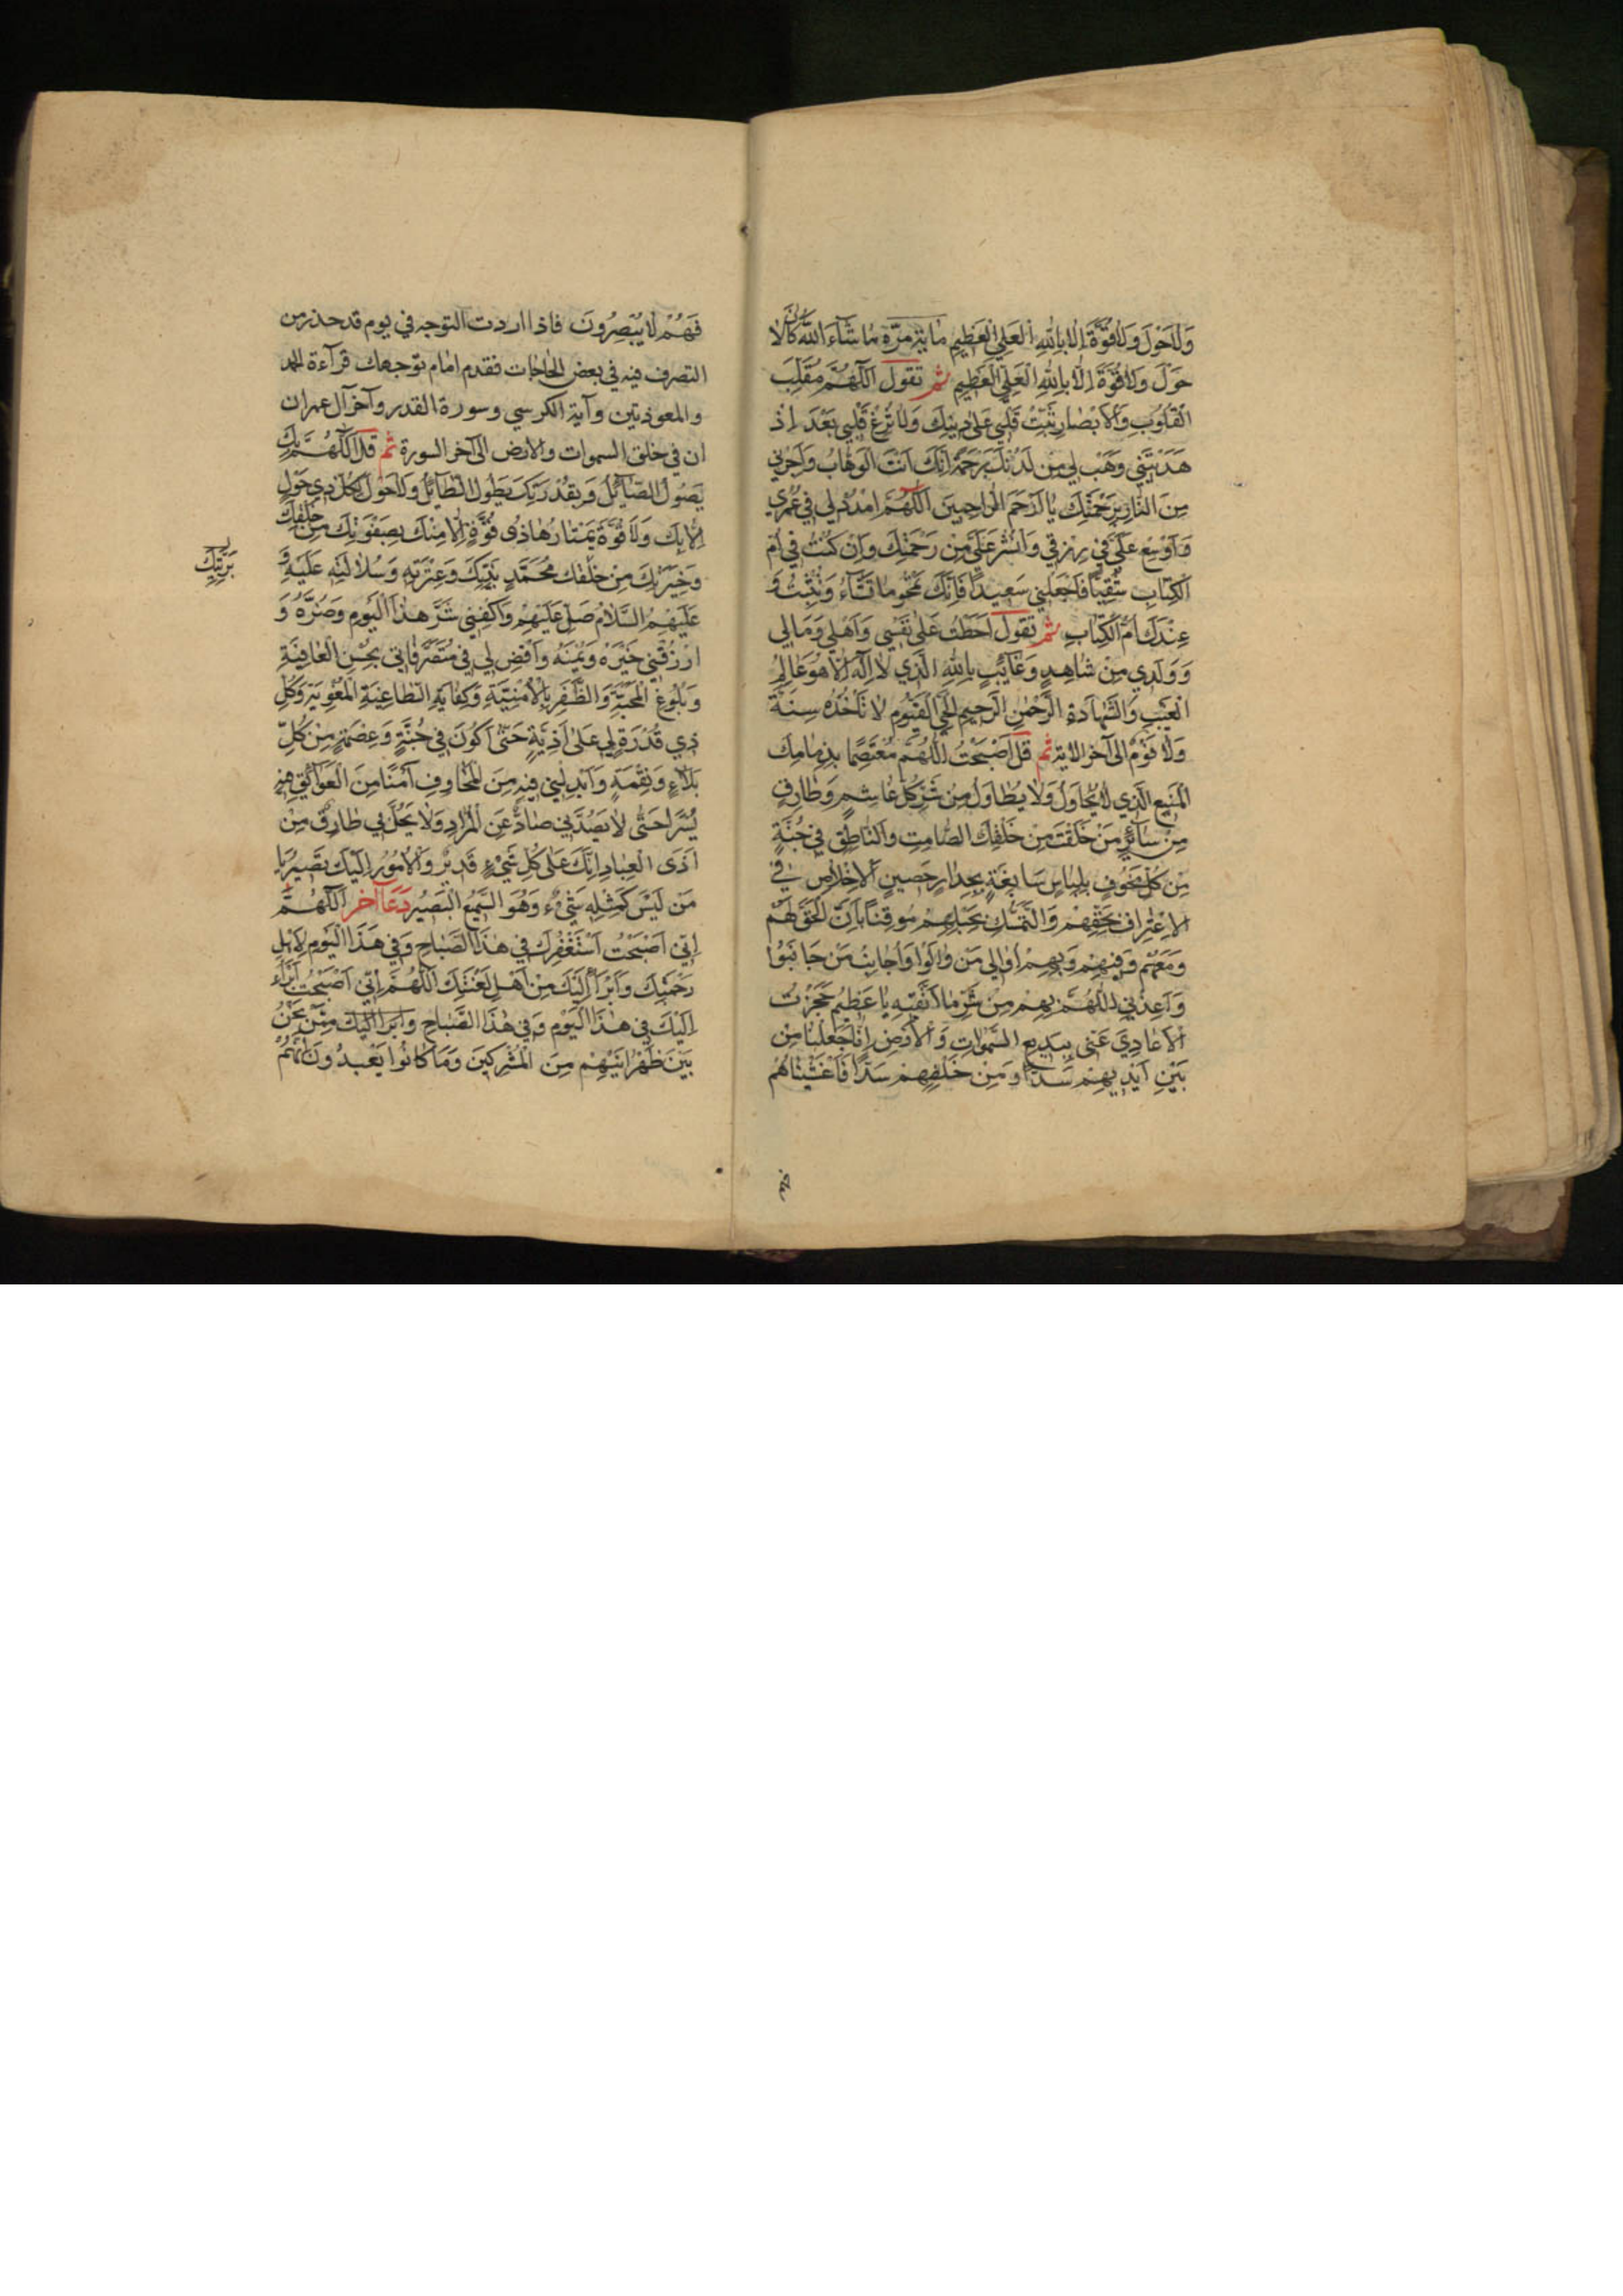 وَلَا حَوْلَ وَلَا قُوَّةَ اِلَّا بِاللهِ الْعَلِيِّ الْعَظِيمِ مائة مَرّة مَا شَاءَ اللهُ كَانَ لَا
حَوْلَ وَلَا قُوَّةَ اِلَّا بِاللهِ الْعَلِيِّ الْعَظِيمِ ثم تقول اَللّٰهُمَّ مُقَلِّبَ
الْقُلُوبِ وَالْاَبْصَارِ ثَبِّتْ قَلْبِي عَلَى دِينِكَ وَلَا تُزِغْ قَلْبِي بَعْدَ اِذْ
هَدَيْتَنِي وَهَبْ لِي مِنْ لَدُنْكَ رَحْمَةً اِنَّكَ اَنْتَ الْوَهَّابُ وَاَجِرْنِي
مِنَ النَّارِ بِرَحْمَتِكَ يَا اَرْحَمَ الرَّاحِمِينَ اَللّٰهُمَّ امْدُدْ لِي فِي عُمْرِي
وَاَوْسِعْ عَلَيَّ فِي رِزْقِي وَانْشُرْ عَلَيَّ مِنْ رَحْمَتِكَ وَاِنْ كُنْتُ فِي اُمِّ
الْكِتَابِ شَقِيًّا فَاجْعَلْنِي سَعِيدًا فَاِنَّكَ تَمْحُو مَا تَشَاءُ وَتُثْبِتُ وَ
عِنْدَكَ اُمُّ الْكِتَابِ ثم تقول اَحَطْتُ عَلَى نَفْسِي وَاَهْلِي وَمَالِي
وَوَلَدِي مِنْ شَاهِدٍ وَغَائِبٍ بِاللهِ الَّذِي لَا اِلٰهَ اِلَّا هُوَ عَالِمُ
الْغَيْبِ وَالشَّهَادَةِ الرَّحْمٰنُ الرَّحِيمُ الْحَيُّ الْقَيُّومُ لَا تَأْخُذُهُ سِنَةٌ
وَلَا نَوْمٌ الى آخر الآية ثم قل اَصْبَحْتُ اَللّٰهُمَّ مُعْتَصِمًا بِذِمَامِكَ
الْمَنِيعِ الَّذِي لَا يُحَاوَلُ وَلَا يُطَاوَلُ مِنْ شَرِّ كُلِّ غَاشِمٍ وَطَارِقٍ
مِنْ سَائِرِ مَنْ خَلَقْتَ مِنْ خَلْقِكَ الصَّامِتِ وَالنَّاطِقِ فِي جُنَّةٍ
مِنْ كُلِّ مَخُوفٍ بِلِبَاسٍ سَابِغَةٍ بِجِدَارٍ حَصِينٍ الْاِخْلَاصِ فِي
الْاِعْتِرَافِ بِحَقِّهِمْ وَالتَّمَسُّكِ بِحَبْلِهِمْ مُوقِنًا بِاَنَّ الْحَقَّ لَهُمْ
وَمَعَهُمْ وَفِيهِمْ وَبِهِمْ اُوَالِي مَنْ وَالَوْا وَاُجَانِبُ مَنْ جَانَبُوا
وَاَعِذْنِي اَللّٰهُمَّ بِهِمْ مِنْ شَرِّ مَا اَتَّقِيهِ يَا عَظِيمُ حَجَزْتُ
الْاَعَادِيَ عَنِّي بِبَدِيعِ السَّمٰوَاتِ وَالْاَرْضِ اِنَّا جَعَلْنَا مِنْ
بَيْنِ اَيْدِيهِمْ سَدًّا وَمِنْ خَلْفِهِمْ سَدًّا فَاَغْشَيْنَاهُمْ
فَهُمْ لَا يُبْصِرُونَ فاذا اردت التوجه في يوم قد حذر من
التصرف فيه في بعض الحاجات فقدم امام توجهك قرآءة الحمد
والمعوذتين وآية الكرسي وسورة القدر وآخر آل عمران
ان في خلق السموات والارض الى آخر السورة ثم قل اَللّٰهُمَّ بِكَ
يَصُولُ الصَّائِلُ وَبِقُدْرَتِكَ يَطُولُ الطَّائِلُ وَلَا حَوْلَ لِكُلِّ ذِي حَوْلٍ
اِلَّا بِكَ وَلَا قُوَّةَ يَمْتَارُهَا ذُو قُوَّةٍ اِلَّا مِنْكَ بِصِفْوَتِكَ مِنْ خَلْقِكَ
وَخِيَرَتِكَ مِنْ خَلْقِكَ مُحَمَّدٍ نَبِيِّكَ وَعِتْرَتِهِ وَسُلَالَتِهِ عَلَيْهِ وَ
بَرِيَّتِكَ
عَلَيْهِمُ السَّلَامُ صَلِّ عَلَيْهِمْ وَاكْفِنِي شَرَّ هٰذَا الْيَوْمِ وَضُرَّهُ وَ
ارْزُقْنِي خَيْرَهُ وَيُمْنَهُ وَاقْضِ لِي فِي مُتَصَرَّفَاتِي بِحُسْنِ الْعَاقِبَةِ
وَبُلُوغِ الْمَحَبَّةِ وَالظَّفَرِ بِالْاُمْنِيَّةِ وَكِفَايَةِ الطَّاغِيَةِ الْمُغْوِيَةِ وَكُلِّ
ذِي قُدْرَةٍ لِي عَلَى اَذِيَّةٍ حَتَّى اَكُونَ فِي جُنَّةٍ وَعِصْمَةٍ مِنْ كُلِّ
بَلَاءٍ وَنِقْمَةٍ وَاَبْدِلْنِي فِيهِ مِنَ الْمَخَاوِفِ اَمْنًا مِنَ الْعَوَائِقِ فِيهِ
يُسْرًا حَتَّى لَا يَصُدَّنِي صَادٌّ عَنِ الْمُرَادِ وَلَا يَحُلَّ بِي طَارِقٌ مِنْ
اَذَى الْعِبَادِ اِنَّكَ عَلَى كُلِّ شَيْءٍ قَدِيرٌ وَالْاُمُورُ اِلَيْكَ تَصِيرُ يَا
مَنْ لَيْسَ كَمِثْلِهِ شَيْءٌ وَهُوَ السَّمِيعُ الْبَصِيرُ دعآ آخر اَللّٰهُمَّ
اِنِّي اَصْبَحْتُ اَسْتَغْفِرُكَ فِي هٰذَا الصَّبَاحِ وَفِي هٰذَا الْيَوْمِ لِاَهْلِ
رَحْمَتِكَ وَاَبْرَأُ اِلَيْكَ مِنْ اَهْلِ لَعْنَتِكَ اَللّٰهُمَّ اِنِّي اَصْبَحْتُ اَبْرَأُ
اِلَيْكَ فِي هٰذَا الْيَوْمِ وَفِي هٰذَا الصَّبَاحِ وَاَبْرَأُ اِلَيْكَ مِمَّنْ نَحْنُ
بَيْنَ ظَهْرَانَيْهِمْ مِنَ الْمُشْرِكِينَ وَمَا كَانُوا يَعْبُدُونَ اِنَّهُمْ